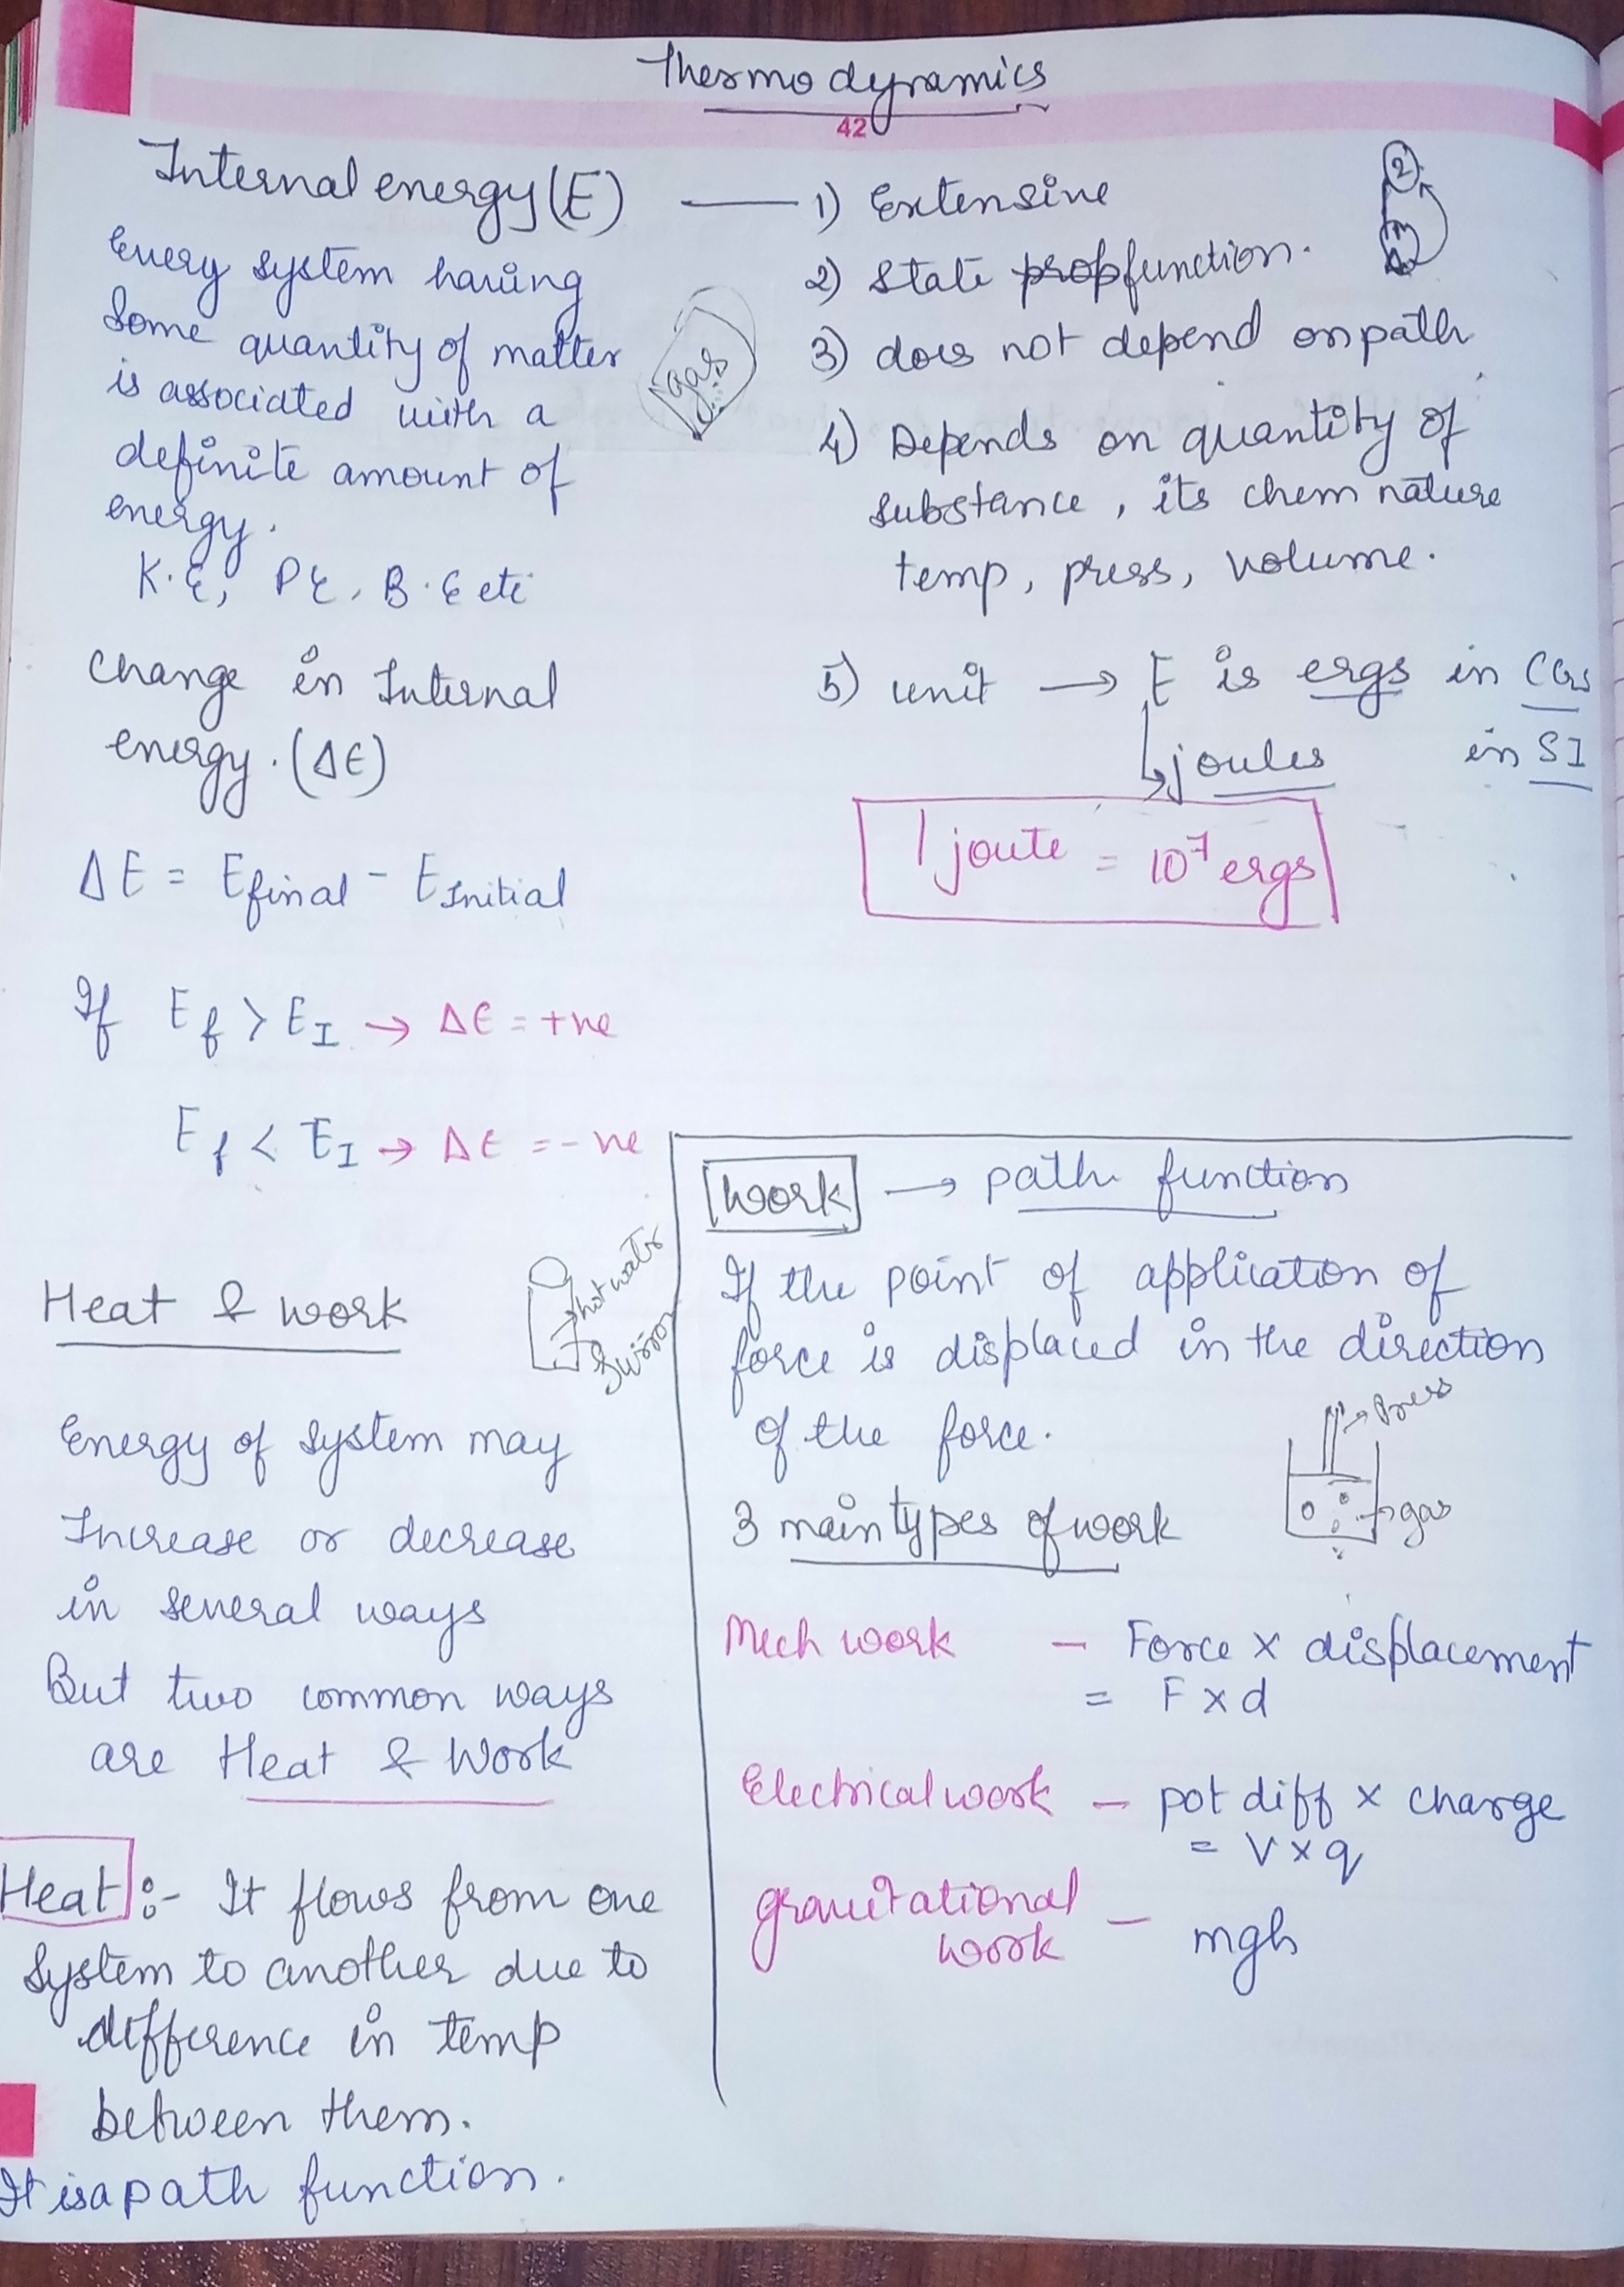 Thermodynamics
42
Internal energy (E)
Every system having
some quantity of matter
is associated with a
definite amount of
energy.
K.E, PE, B.E etc
gas
1) Extensine
2) State prop function.
3) does not depend on path
4) Depends on quantity of
substance, its chem nature
temp, press, volume.
5) unit → E is ergs in CGS
↳ joules in SI
1 joute = 10⁷ ergs
2
Change in Internal
energy. (ΔE)
ΔE = Efinal - EInitial
If Ef > EI → ΔE = +ve
Ef < EI → ΔE = -ve
Heat & work
hot water
Energy of system may
Increase or decrease
in several ways
But two common ways
are Heat & Work
Heat :- It flows from one
system to another due to
difference in temp
between them.
It is a path function.
Work → path function
If the point of application of
force is displaced in the direction
of the force.
Press
gas
3 main types of work
Mech work - Force x displacement
= F x d
Electrical work - pot diff x charge
= V x q
gravitational
work - mgh